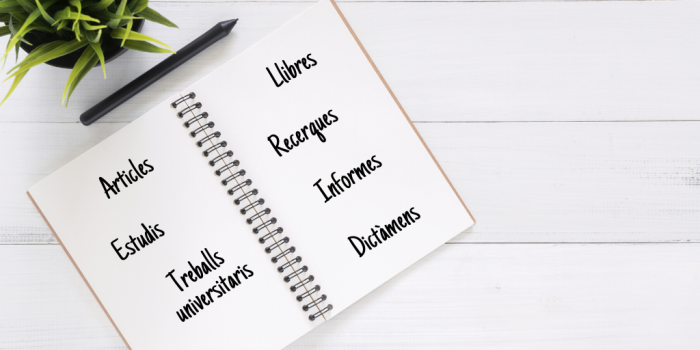 Articles
Estudis
Treballs
universitaris
Llibres
Recerques
Informes
Dictàmens